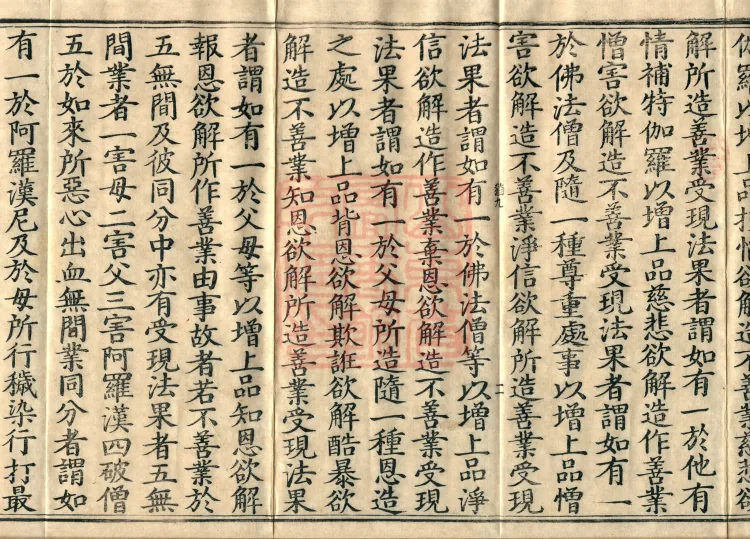 羅以增上品欲解造不善業慈悲欲
解所造善業受現法果者謂如有一於他有
情補特伽羅以增上品慈悲欲解造作善業
憎害欲解造不善業受現法果者謂如有一
於佛法僧及隨一種尊重處事以增上品憎
害欲解造不善業淨信欲解所造善業受現
九 二
法果者謂如有一於佛法僧等以增上品淨
信欲解造作善業棄恩欲解造不善業受現
法果者謂如有一於父母所造隨一種恩造
之處以增上品背恩欲解欺誑欲解酷暴欲
解造不善業知恩欲解所造善業受現法果
者謂如有一於父母等以增上品知恩欲解
報恩欲解所作善業由事故者若不善業於
五無間及彼同分中亦有受現法果者五無
間業者一害母二害父三害阿羅漢四破僧
五於如來所惡心出血無間業同分者謂如
有一於阿羅漢尼及於母所行穢染行打最